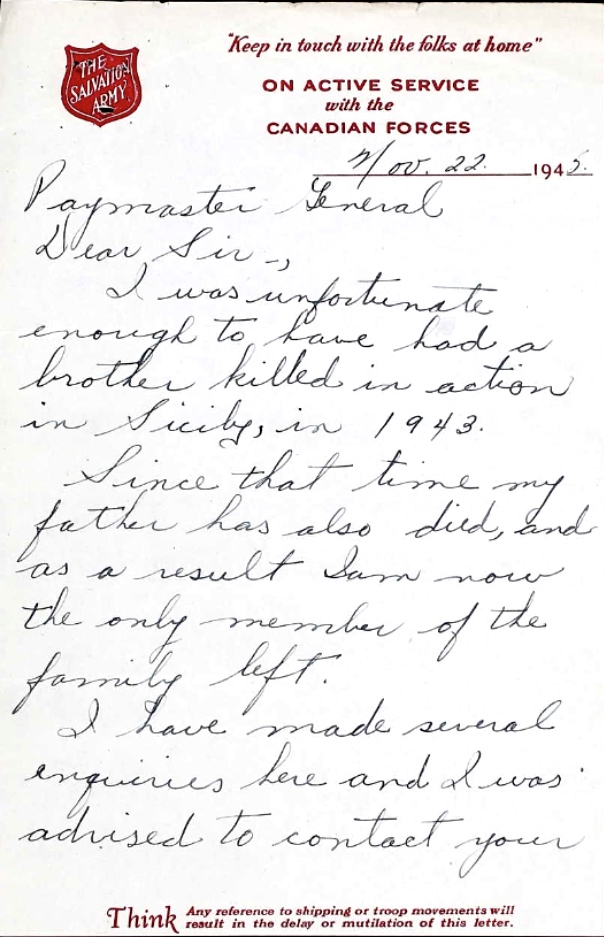 "Keep in touch with the folks at home"
THE
SALVATION
ARMY
ON ACTIVE SERVICE
with the
CANADIAN FORCES
Nov. 22. 1945.
Paymaster General
Dear Sir -,
I was unfortunate
enough to have had a
brother killed in action
in Sicily, in 1943.
Since that time my
father has also died, and
as a result I am now
the only member of the
family left.
I have made several
enquiries here and I was
advised to contact your
Think Any reference to shipping or troop movements will
result in the delay or mutilation of this letter.